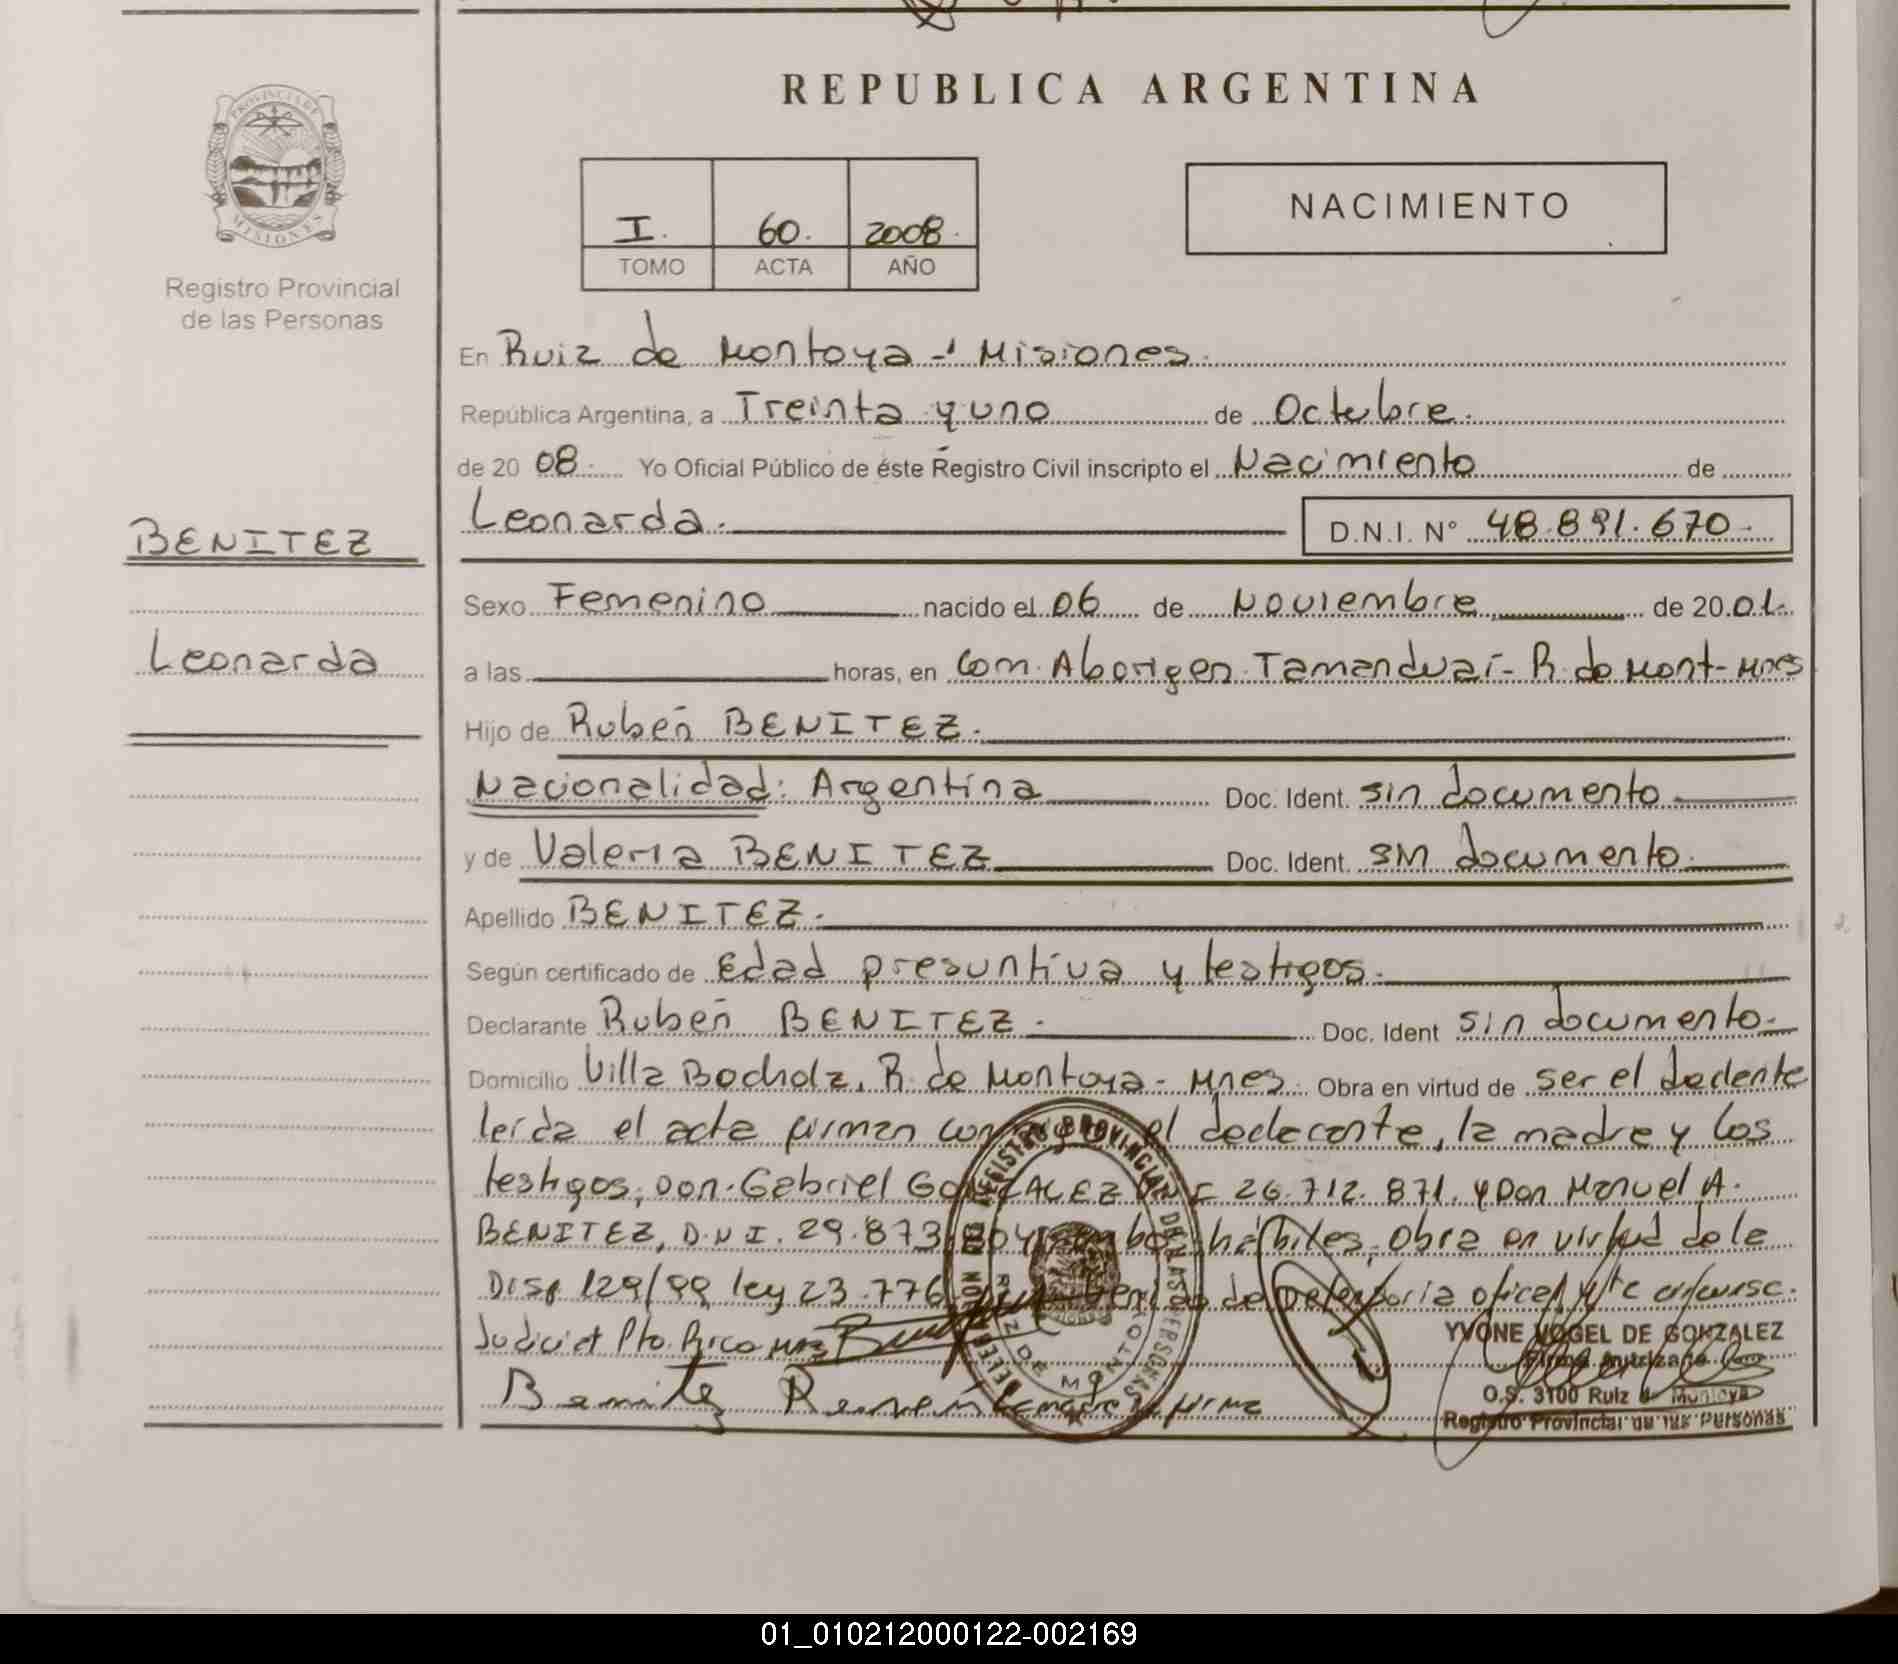 REPUBLICA ARGENTINA
PROVINCIA DE
MISIONES
Registro Provincial
de las Personas
I. 60. 2008.
TOMO ACTA AÑO
NACIMIENTO
En Ruiz de Montoya - Misiones.
República Argentina, a Treinta y uno de Octubre.
de 20 08. Yo Oficial Público de éste Registro Civil inscripto el Nacimiento de
Leonarda. D.N.I. N° 48.891.670.
BENITEZ
Leonarda
Sexo Femenino nacido el 06 de Noviembre de 20 01.
a las horas, en Com. Aborigen Tamanduaí - R. de Mont - Mnes
Hijo de Rubén BENITEZ.
Nacionalidad: Argentina Doc. Ident. sin documento
y de Valeria BENITEZ Doc. Ident. sin documento.
Apellido BENITEZ.
Según certificado de edad presuntiva y testigos.
Declarante Rubén BENITEZ. Doc. Ident sin documento.
Domicilio Villa Bocholz, R. de Montoya - Mnes. Obra en virtud de ser el
leída el acta firman el declarante, la madre y los
testigos, Don. Gabriel GONZALEZ DNI 26.712.871. y Don Manuel A.
BENITEZ, D.N.I. 29.873. hábiles, Obra en virtud de la
Disp 129/99 ley 23.776 de Defensoria oficial
Judicial Pto. Rico Mnes
YVONE VOGEL DE GONZALEZ
Firma Autorizada
O.S. 3100 Ruiz de Montoya
Registro Provincial de las Personas
Benitez
REGISTRO PROVINCIAL DE LAS PERSONAS
RUIZ DE MONTOYA
01_010212000122-002169